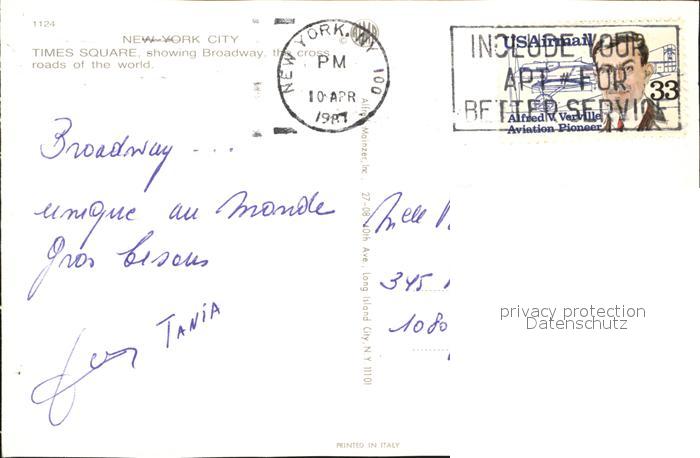 1124
NEW YORK CITY
TIMES SQUARE, showing Broadway, the cross
roads of the world.
NEW YORK, NY 100
PM
10 APR
1987
INCLUDE YOUR
APT # FOR
BETTER SERVICE
USAirmail
33
Alfred V. Verville
Aviation Pioneer
Broadway ...
unique au monde
Gros bisous
TANIA
Alfred Mainzer, Inc. 27-08 40th Ave., Long Island City, N.Y. 11101
Melle
345
1080
privacy protection
Datenschutz
PRINTED IN ITALY